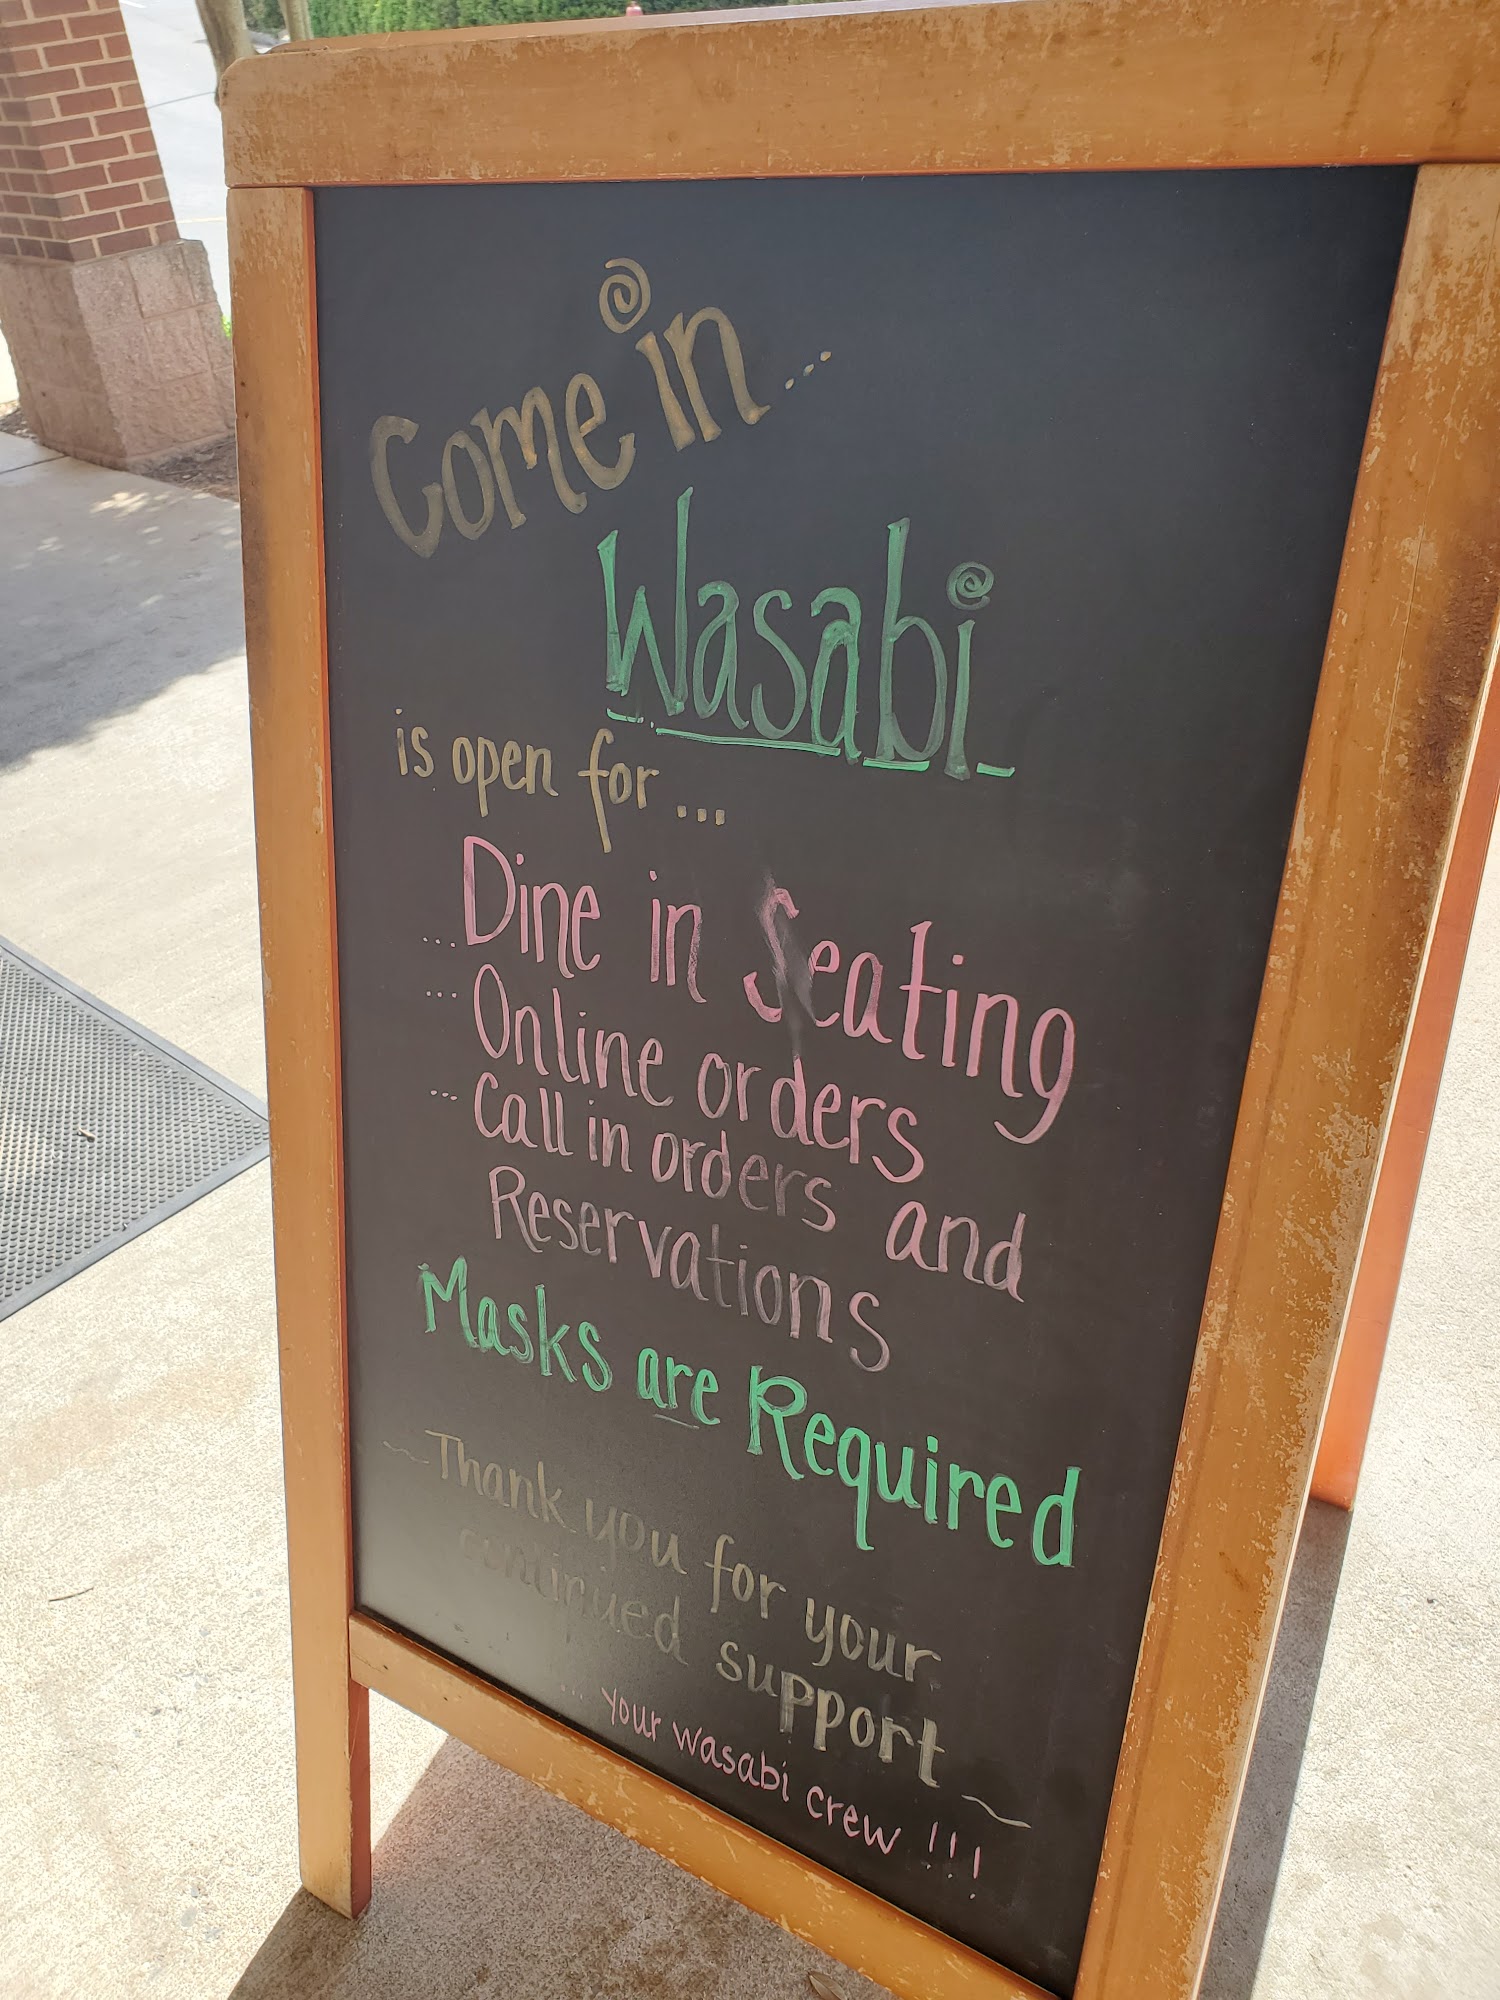 Come in...
Wasabi
is open for...
...Dine in Seating
...Online orders
...Call in orders and
Reservations
Masks are Required
~Thank you for your
continued support~
... your wasabi crew!!!